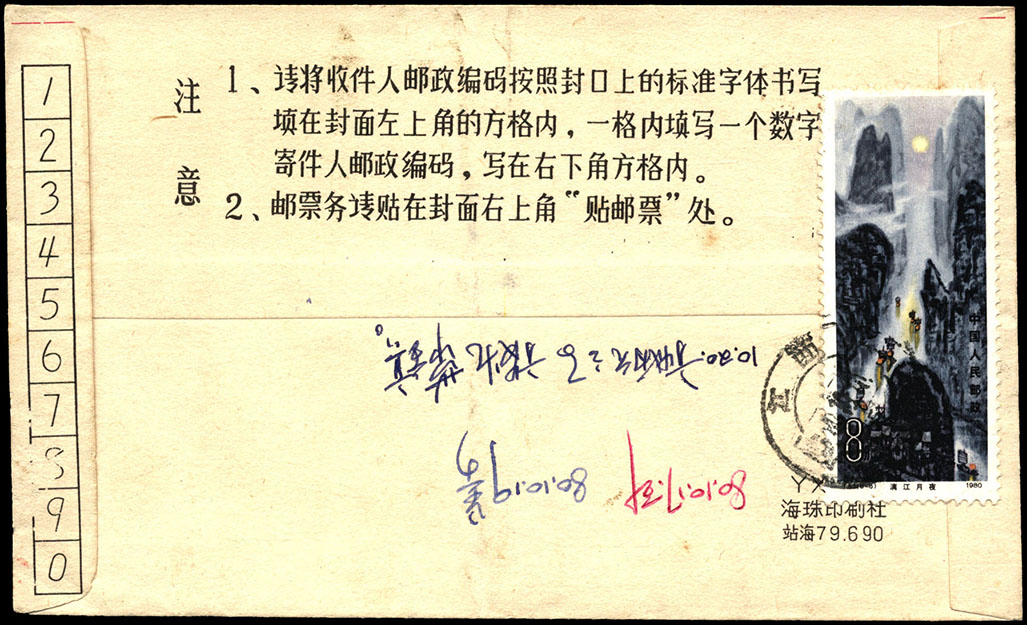 注意
1、请将收件人邮政编码按照封口上的标准字体书写
填在封面左上角的方格内，一格内填写一个数字
寄件人邮政编码，写在右下角方格内。
2、邮票务请贴在封面右上角“贴邮票”处。
1
2
3
4
5
6
7
8
9
0
中国人民邮政
8
漓江月夜 1980
江西
海珠印刷社
站海79.690
10.20.
80.10.19
80.10.17.